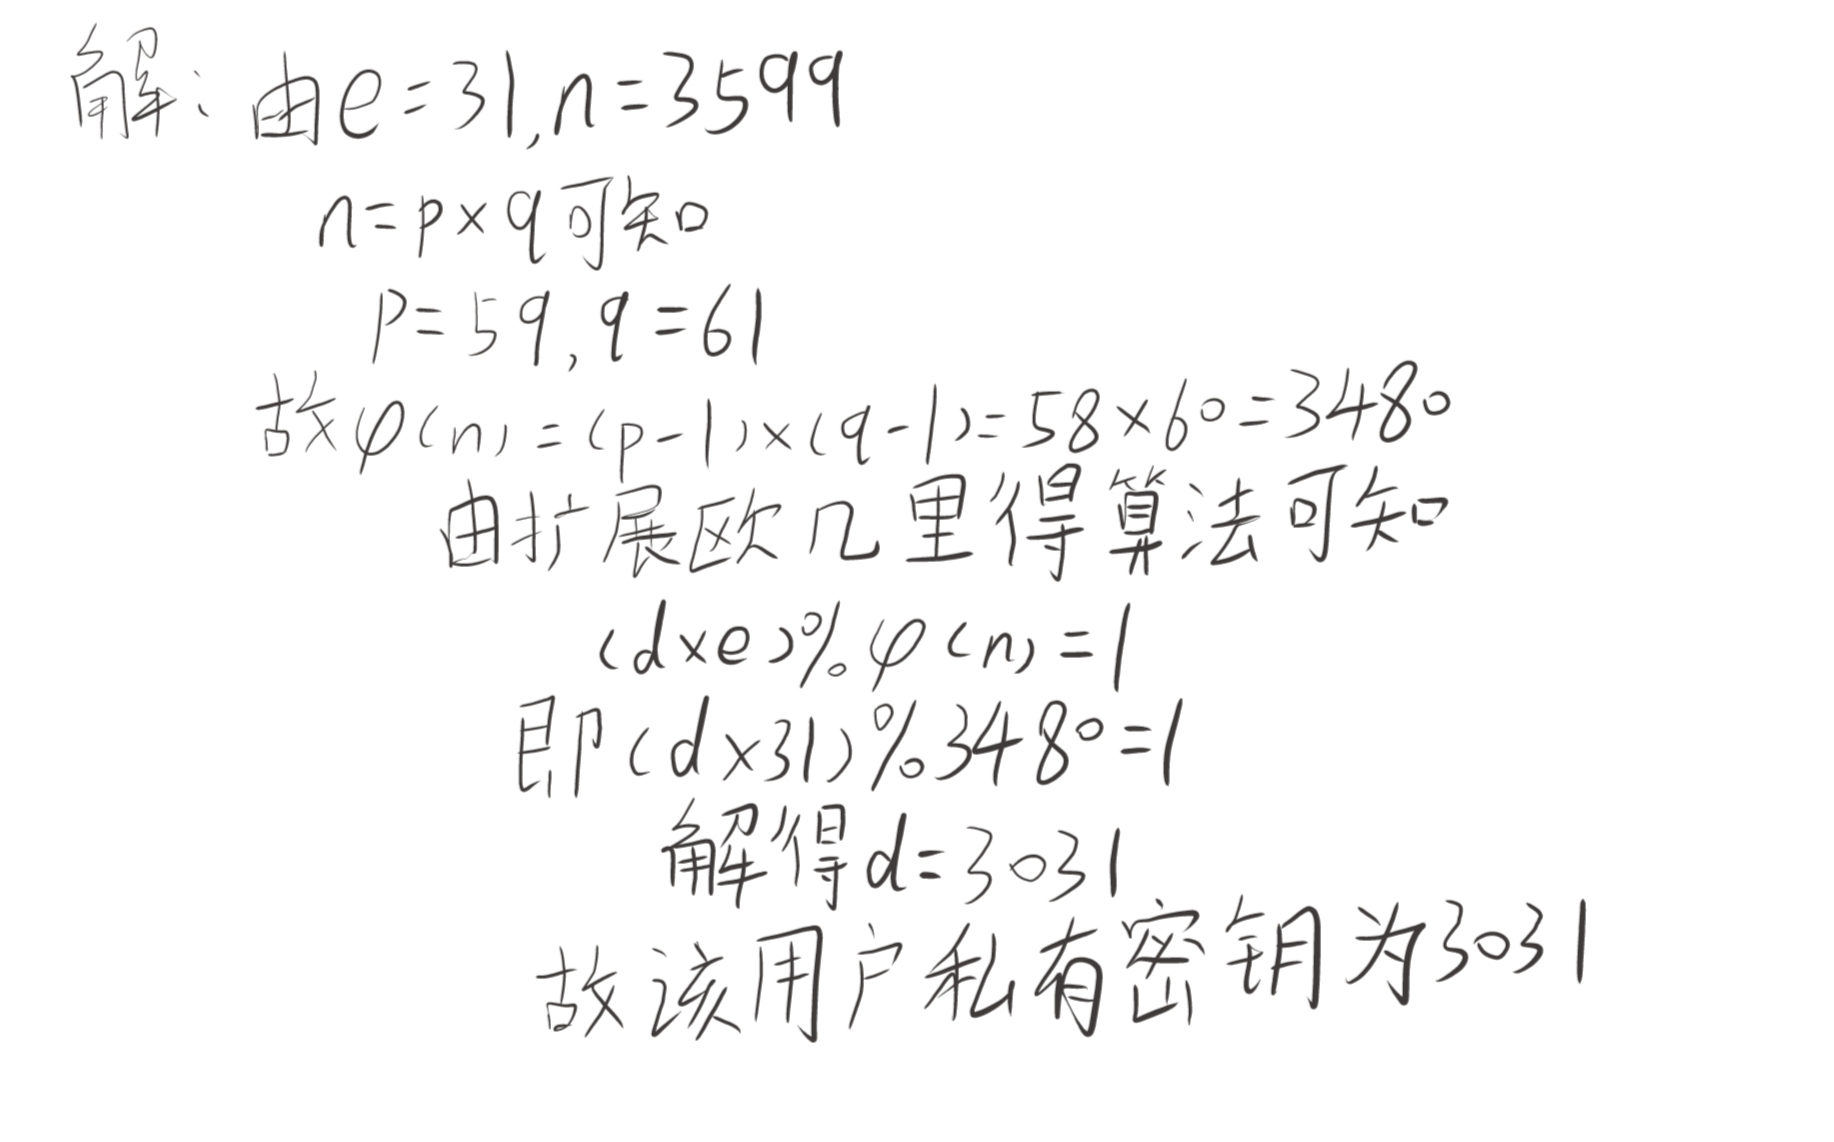 解：由e=31,n=3599
n=p×q可知
P=59,q=61
故φ(n)=(p-1)×(q-1)=58×60=3480
由扩展欧几里得算法可知
(d×e)%φ(n)=1
即(d×31)%3480=1
解得d=3031
故该用户私有密钥为3031